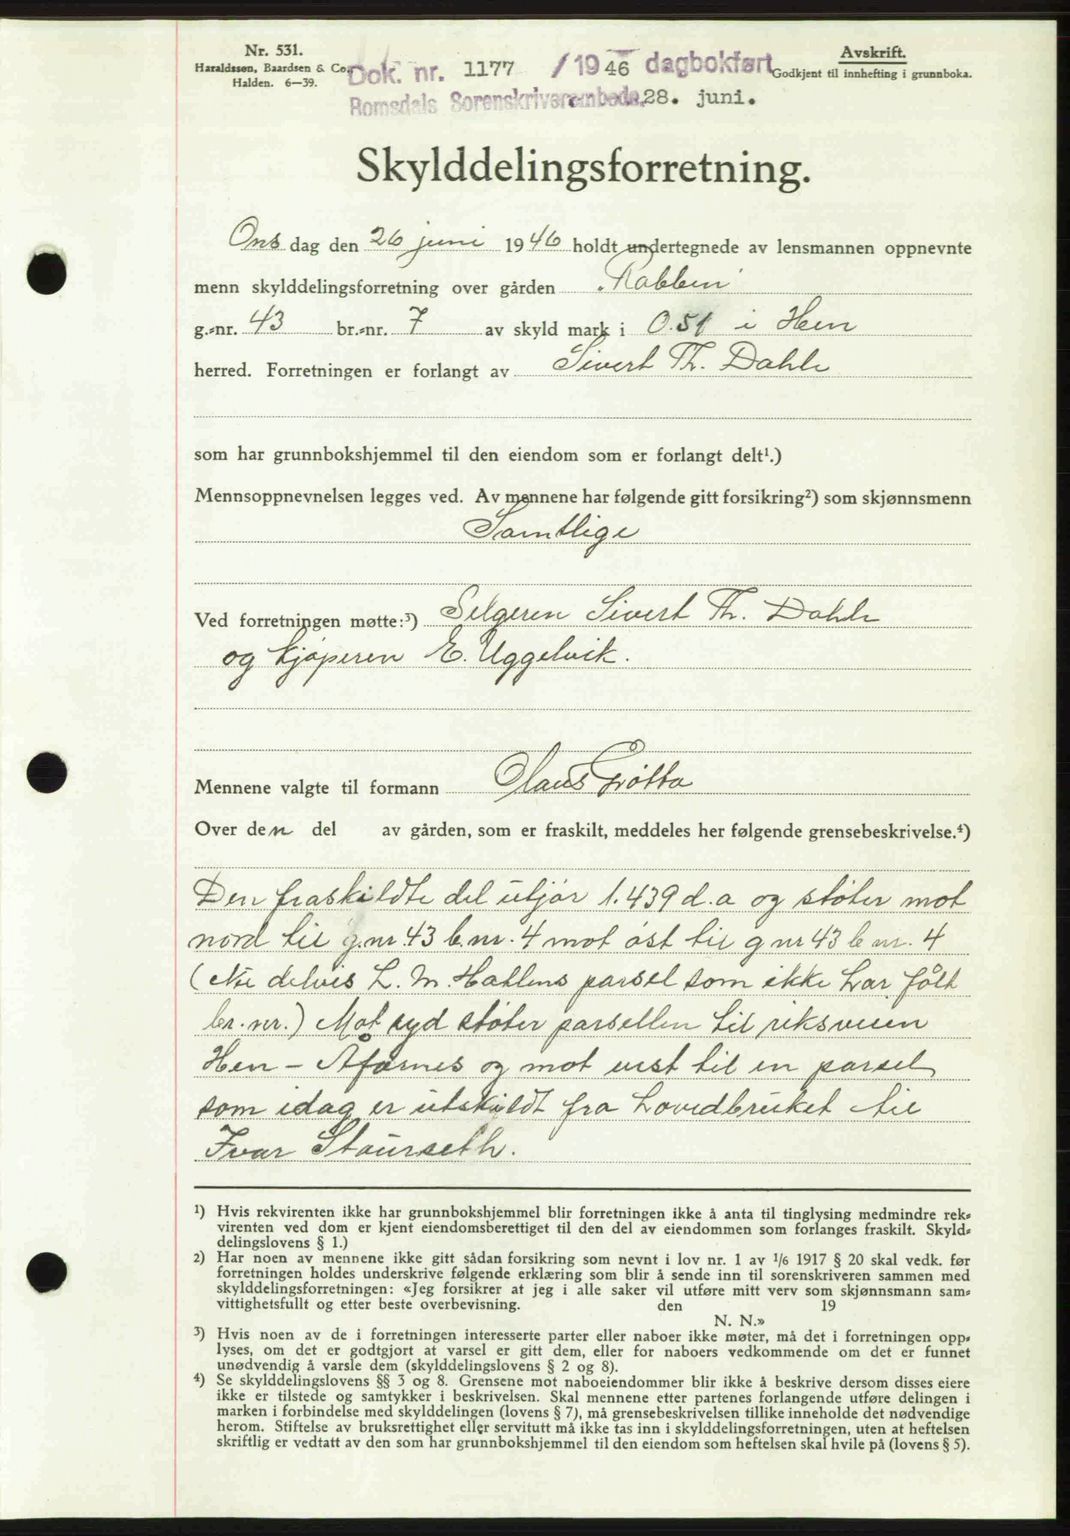 Nr. 531.
Haraldssen, Baardsen & Co.
Halden. 6—39.
Dok. nr. 1177 /1946 dagbokført
Romsdals Sorenskriverembede. 28. juni.
Avskrift.
Godkjent til innhefting i grunnboka.
Skylddelingsforretning.
Ons dag den 26 juni 1946 holdt undertegnede av lensmannen oppnevnte
menn skylddelingsforretning over gården "Rabben"
g.-nr. 43 br.-nr. 7 av skyld mark i 0.51 i Hen
herred. Forretningen er forlangt av Sivert Th. Dahle
som har grunnbokshjemmel til den eiendom som er forlangt delt¹.)
Mennsoppnevnelsen legges ved. Av mennene har følgende gitt forsikring²) som skjønnsmenn
Samtlige
Ved forretningen møtte:³) Selgeren Sivert Th. Dahle
og kjøperen E. Uggelvik.
Mennene valgte til formann Olaus Grøtta
Over den del av gården, som er fraskilt, meddeles her følgende grensebeskrivelse.⁴)
Den fraskildte del utjør 1.439 d.a og støter mot
nord til g.nr. 43 b.nr. 4 mot øst til g nr 43 b nr. 4
(Nu delvis L. M. Hatlens parsel som ikke har fått
br. nr.) Mot syd støter parsellen til riksveien
Hen - Åfarnes og mot vest til en parsel
som idag er utskildt fra hovedbruket til
Ivar Staurseth.
¹) Hvis rekvirenten ikke har grunnbokshjemmel blir forretningen ikke å anta til tinglysing medmindre rek-
virenten ved dom er kjent eiendomsberettiget til den del av eiendommen som forlanges fraskilt. Skyld-
delingslovens § 1.)
²) Har noen av mennene ikke gitt sådan forsikring som nevnt i lov nr. 1 av 1/6 1917 § 20 skal vedk. før
forretningen holdes underskrive følgende erklæring som blir å sende inn til sorenskriveren sammen med
skylddelingsforretningen: «Jeg forsikrer at jeg i alle saker vil utføre mitt verv som skjønnsmann sam-
vittighetsfullt og etter beste overbevisning. den 19
N. N.»
³) Hvis noen av de i forretningen interesserte parter eller naboer ikke møter, må det i forretningen opp-
lyses, om det er godtgjort at varsel er gitt dem, eller for naboers vedkommende om det er funnet
unødvendig å varsle dem (skylddelingslovens § 2 og 8).
⁴) Se skylddelingslovens §§ 3 og 8. Grensene mot naboeiendommer blir ikke å beskrive dersom disses eiere
ikke er tilstede og samtykker i beskrivelsen. Skal mennene etter partenes forlangende utføre delingen i
marken i forbindelse med skylddelingen (lovens § 7), må grensebeskrivelsen tillike inneholde det nødvendige
herom. Stiftelse av bruksrettighet eller servitutt må ikke tas inn i skylddelingsforretningen, uten at heftelsen
skriftlig er vedtatt av den som har grunnbokshjemmel til den eiendom som heftelsen skal hvile på (lovens § 5).